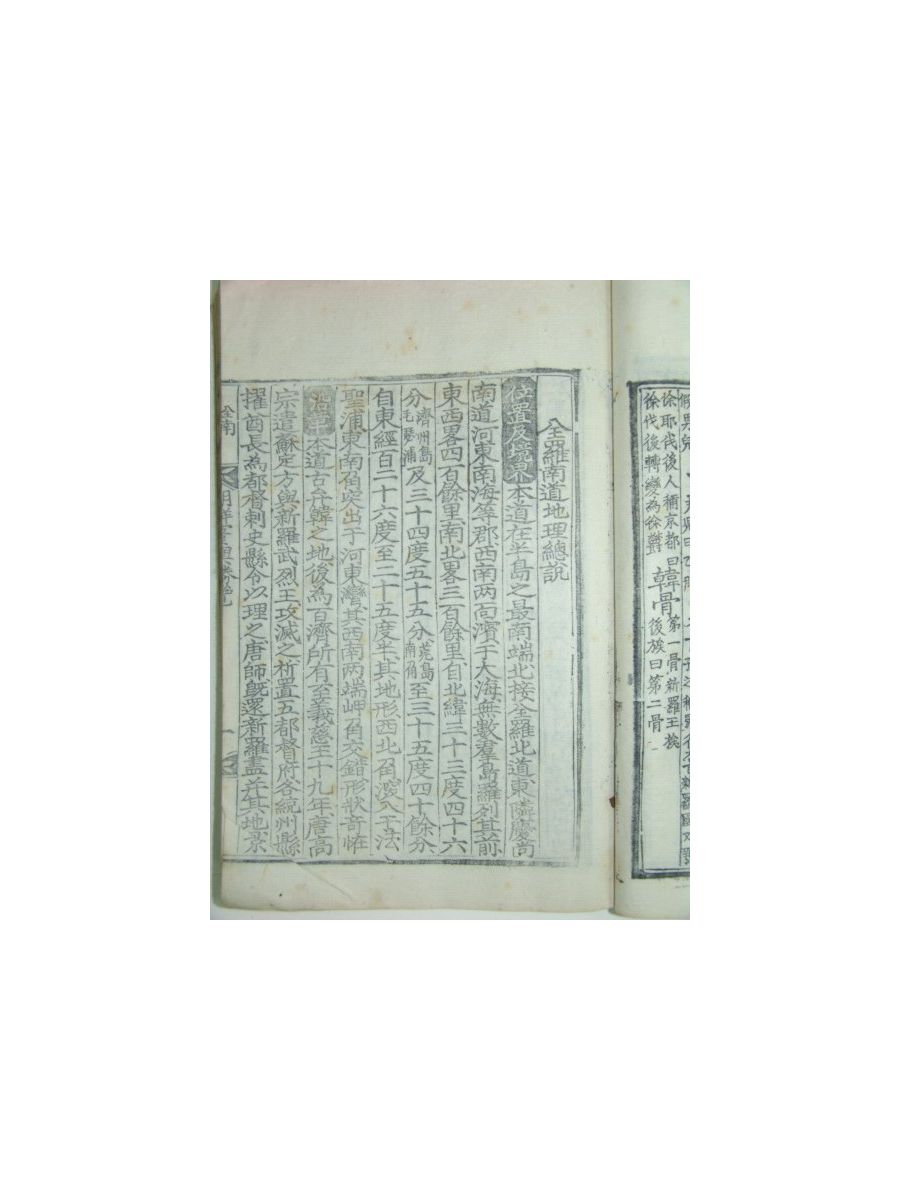 徐耶伐後人稱京都曰韓骨第一骨新羅王族
徐伐後轉變為徐鬱後族曰第二骨
全羅南道地理總說
位置及境界本道在半島之最南端北接全羅北道東隣慶尙
南道河東南海等郡西南两面濱于大海無數羣島羅列其前
東西畧四百餘里南北畧三百餘里自北緯三十三度四十六
分濟州島毛瑟浦及三十四度五十五分莞島南角至三十五度四十餘分
自東經百二十六度至二十五度半其地形西北角深入于法
聖浦東南角突出于河東灣其西南两端岬角交錯形狀奇怪
沿革本道古弁韓之地後為百濟所有至義慈王十九年唐高
宗遣蘇定方與新羅武烈王攻滅之析置五都督府各統州縣
擢酋長為都督刺史縣令以理之唐師旣還新羅盡幷其地景
全南
一